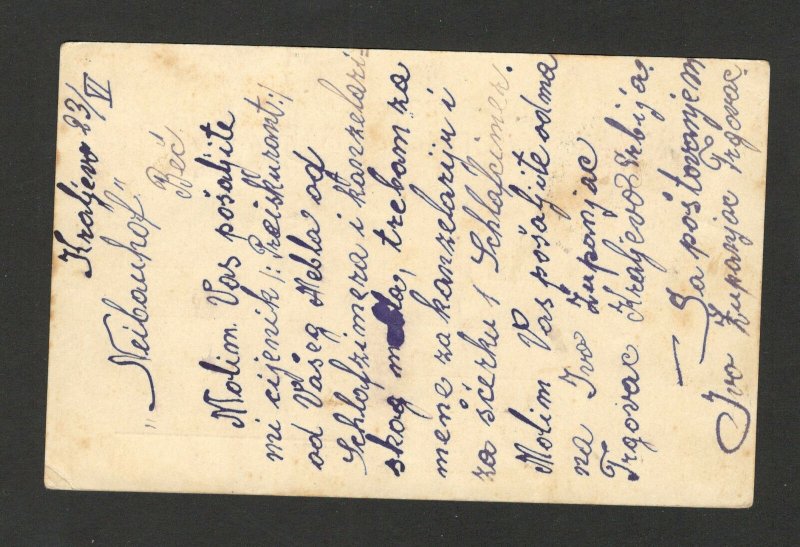 Kraljevo 23/VI
„Neibauhof"
Beč
Molim Vas pošaljite
mi cijenik /: Preiskurant :/
od Vašeg Mebla od
Schlafzimera i kanzelarij=
skog mebla, trebam za
mene za kanzelariju i
za šćerku 1 Schlafcimer.
Molim Vas pošaljite odma
na Ivo Županjac
Trgovac Kraljevo Srbija.
Sa poštovanjem
Ivo Županjac Trgovac